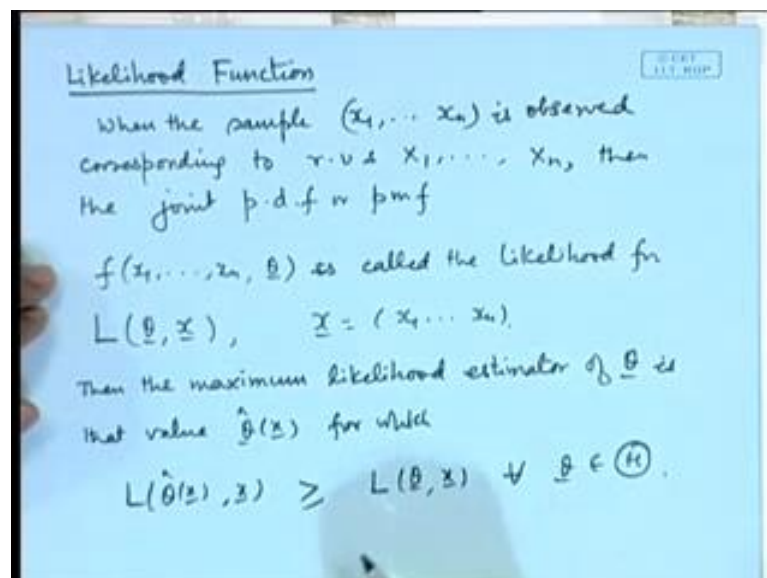 Likelihood Function
When the sample (x₁,... xₙ) is observed
corresponding to r.v.s X₁,...., Xₙ, then
the joint p.d.f or pmf
f(x₁,...,xₙ, θ) is called the likelihood fn
L(θ, x), x = (x₁... xₙ).
Then the maximum likelihood estimator of θ is
that value θ̂(x) for which
L(θ̂(x), x) ≥ L(θ, x) ∀ θ ∈ Ⓗ.